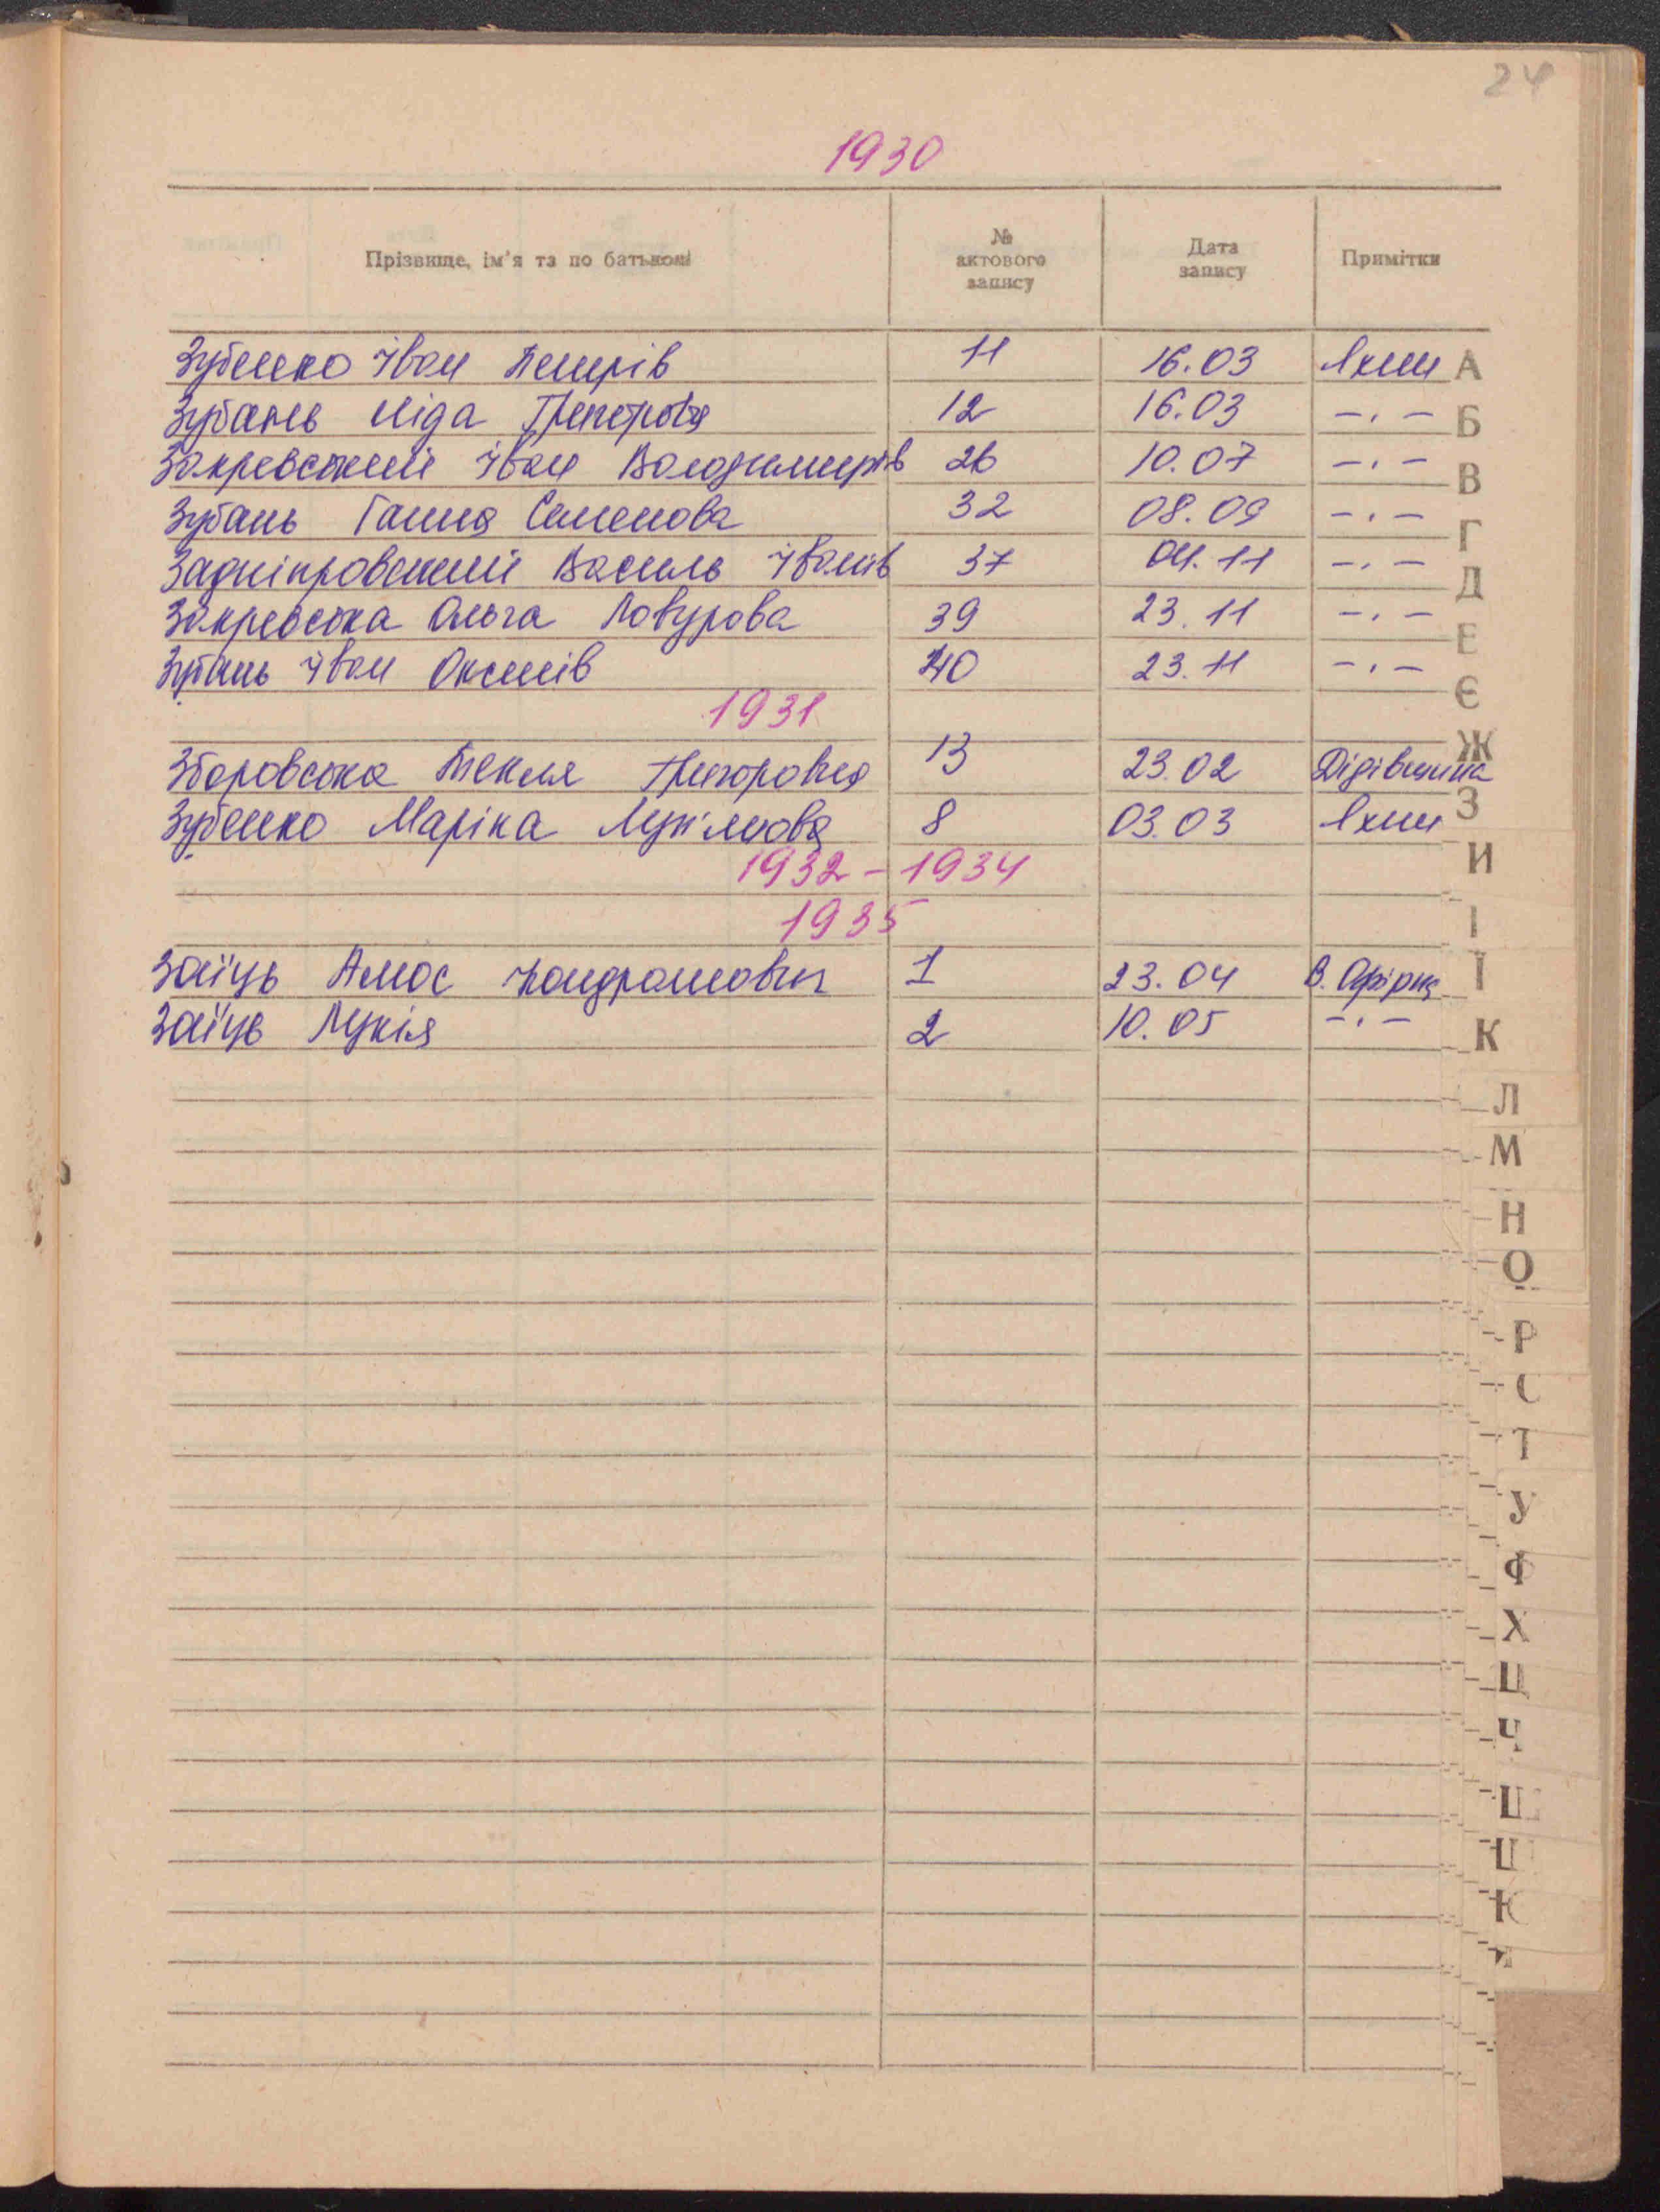 24
1930
Прізвище, ім'я та по батькові № актового запису Дата запису Примітки
Зубенко Іван Петрів 11 16.03 Яхни
Зубань Ліда Григорова 12 16.03 -.-
Закревський Іван Володимирів 26 10.07 -.-
Зубань Ганна Семенова 32 08.09 -.-
Задніпровський Василь Іванів 37 04.11 -.-
Закревська Ольга Лавурова 39 23.11 -.-
Зубань Іван 40 23.11 -.-
1931
Зборовська Текля Григорович 13 23.02 Дідівщина
Зубенко Маріка 8 03.03 Яхни
1932-1934
1935
Заїць Амос Кондратович 1 23.04 В. Офірна
Заїць Лукія 2 10.05 -.-
А
Б
В
Г
Д
Е
Є
Ж
З
И
І
Ї
К
Л
М
Н
О
Р
С
Т
У
Ф
Х
Ц
Ч
Ш
Щ
Ю
Я